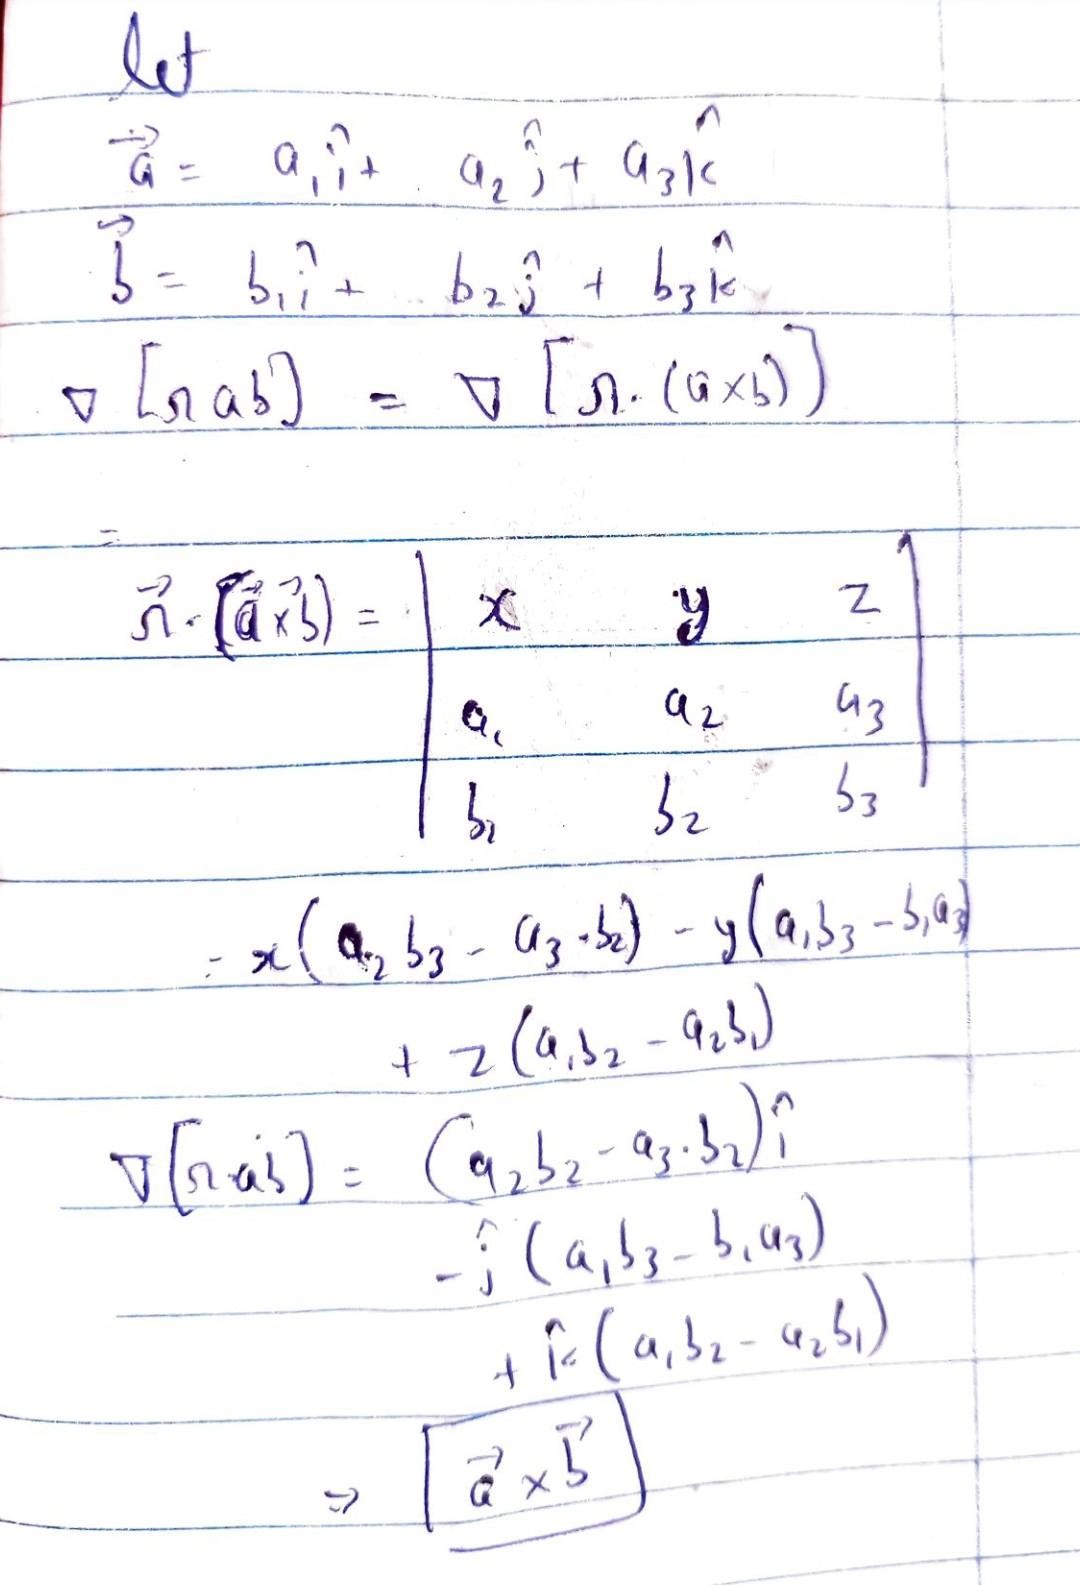 let
a⃗ = a₁î + a₂ĵ + a₃k̂
b⃗ = b₁î + b₂ĵ + b₃k̂
∇ [r a b] = ∇ [r. (a×b)]
=
r⃗ . (a⃗ × b⃗) = | x y z
a₁ a₂ a₃
b₁ b₂ b₃ |
= x(a₂b₃ - a₃.b₂) - y(a₁b₃ - b₁a₃)
+ z(a₁b₂ - a₂b₁)
∇[r ab] = (a₂b₂ - a₃.b₂)î
-ĵ (a₁b₃ - b₁a₃)
+ k̂ (a₁b₂ - a₂b₁)
⇒ a⃗ × b⃗